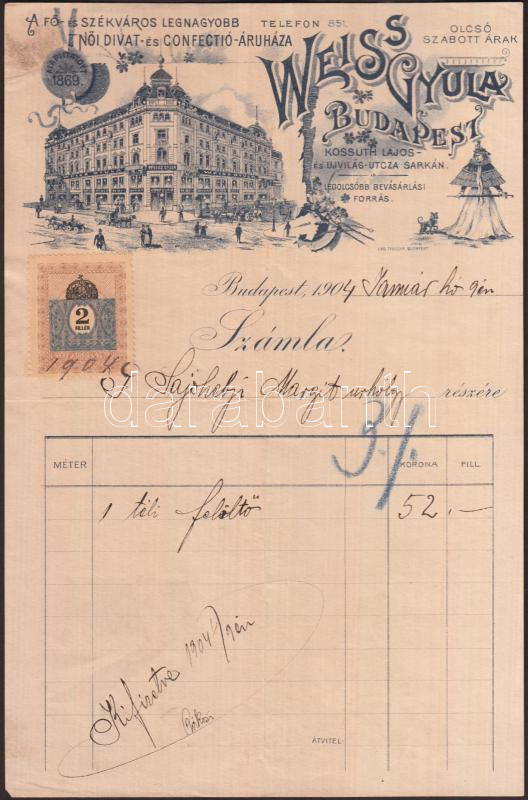 A FŐ- ÉS SZÉKVÁROS LEGNAGYOBB
NŐI DIVAT- ÉS CONFECTIÓ-ÁRUHÁZA
TELEFON 851.
OLCSÓ
SZABOTT ÁRAK
1869.
WEISS
GYULA
BUDAPEST
KOSSUTH LAJOS-
ÉS UJVILÁG-UTCZA SARKÁN.
LEGOLCSÓBB BEVÁSÁRLÁSI
FORRÁS.
2
FILLÉR
1904
Budapest, 1904 Január hó 9én
Számla.
Margit részére
darabanth
MÉTER KORONA FILL.
1 téli felöltő 52.—
Kifizetve 1904 9én
ÁTVITEL